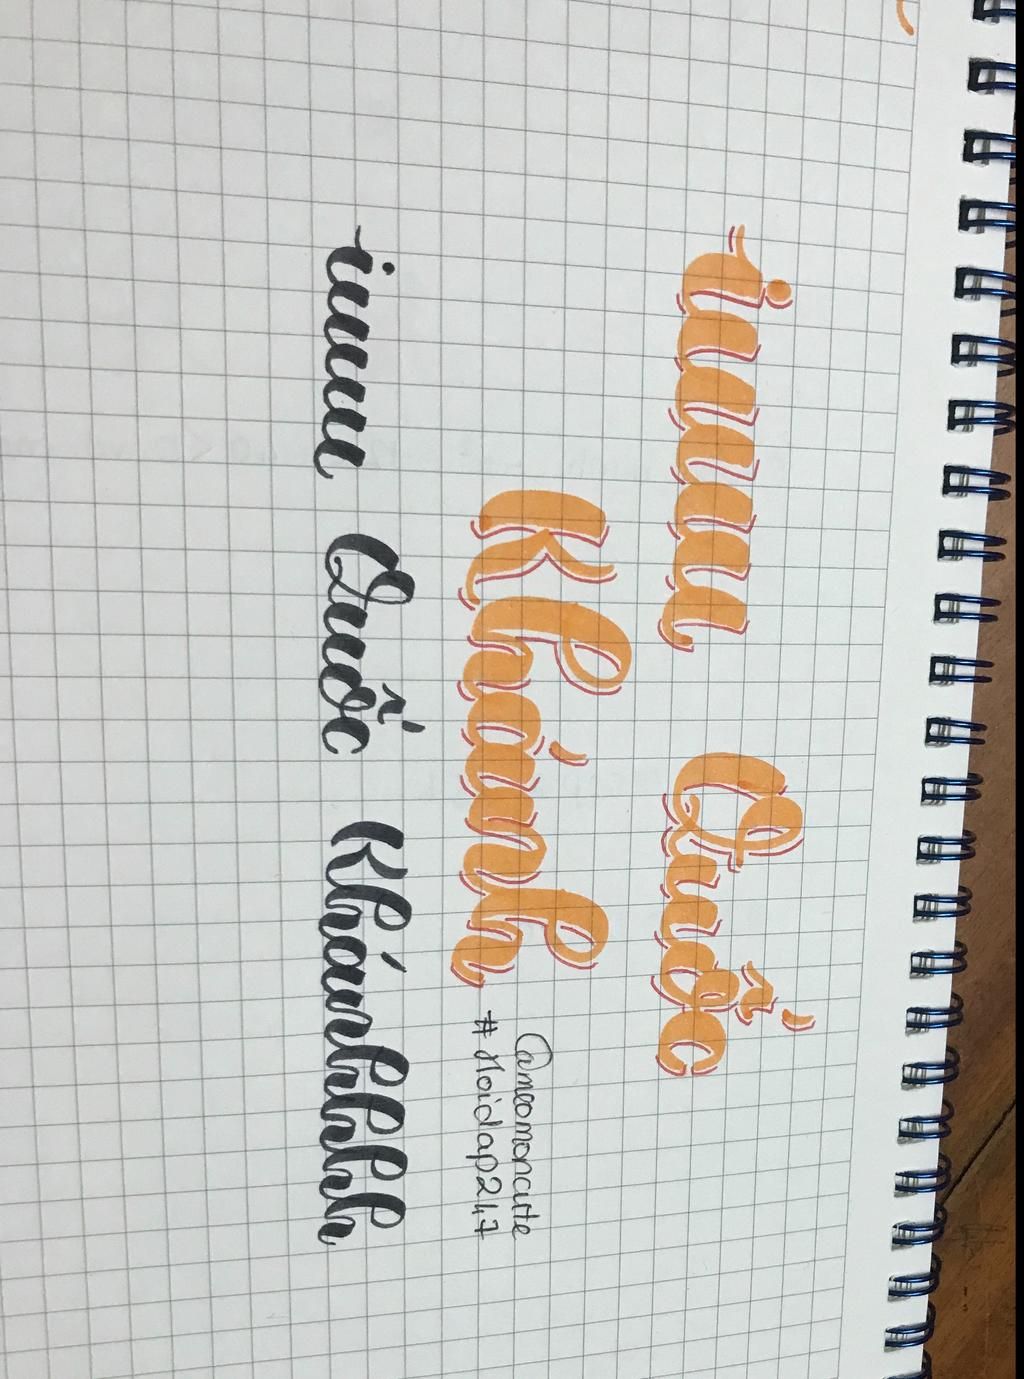 iuuu Quốc
Khánh
Cameomoncute
#Hoidap247
iuuu Quốc Khánhhhh